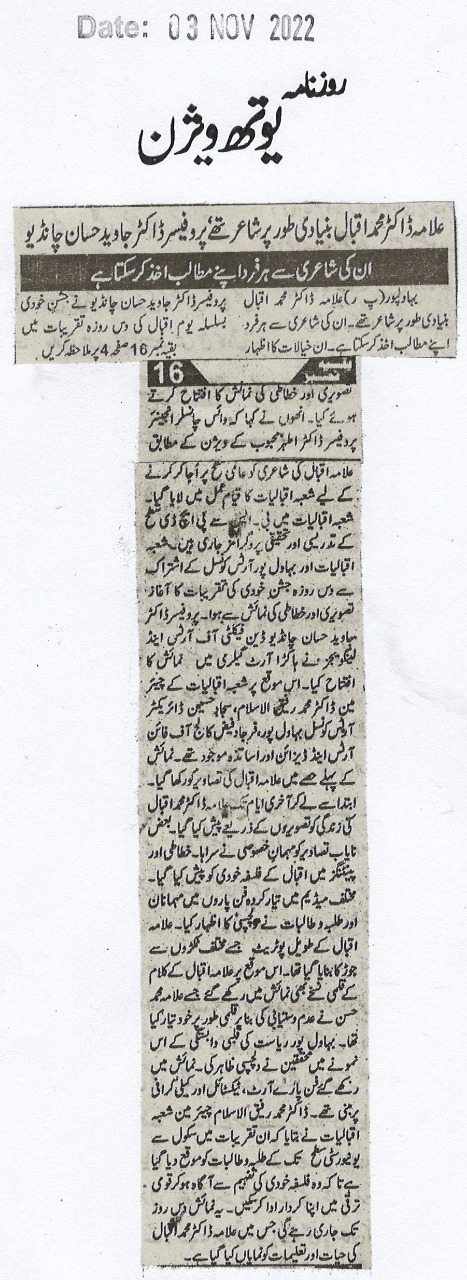 Date: 03 NOV 2022
روزنامہ
یوتھ ویژن
علامہ ڈاکٹر محمد اقبال بنیادی طور پر شاعر تھے پروفیسر ڈاکٹر جاوید حسان چانڈیو
ان کی شاعری سے ہر فرد اپنے مطالب اخذ کر سکتا ہے
بہاولپور (پ ر) علامہ ڈاکٹر محمد اقبال
بنیادی طور پر شاعر تھے۔ ان کی شاعری سے ہر فرد
اپنے مطالب اخذ کر سکتا ہے۔ ان خیالات کا اظہار
پروفیسر ڈاکٹر جاوید حسان چانڈیو نے جشن خودی
بسلسلہ یوم اقبال کی دس روزہ تقریبات میں
بقیہ نمبر 16 صفحہ 4 پر ملاحظہ کریں
بقیہ نمبر 16
تصویری اور خطاطی کی نمائش کا افتتاح کرتے
ہوئے کیا۔ انھوں نے کہا کہ وائس چانسلر انجینئر
پروفیسر ڈاکٹر اطہر محبوب کے ویژن کے مطابق
علامہ اقبال کی شاعری کو عامی سطح پر اجاگر کرنے
کے لیے شعبہ اقبالیات کا قیام عمل میں لایا گیا۔
شعبہ اقبالیات میں بی۔ ایس سے پی ایچ ڈی سطح
کے تدریسی اور تحقیقی پروگرامز جاری ہیں۔ شعبہ
اقبالیات اور بہاول پور آرٹس کونسل کے اشتراک
سے دس روزہ جشن خودی کی تقریبات کا آغاز
تصویری اور خطاطی کی نمائش سے ہوا۔ پروفیسر ڈاکٹر
جاوید حسان چانڈیو ڈین فیکلٹی آف آرٹس اینڈ
لینگوئجز نے ہاکڑا آرٹ گیلری میں نمائش کا
افتتاح کیا۔ اس موقع پر شعبہ اقبالیات کے چیئر
مین ڈاکٹر محمد رفیق الاسلام، سجاد حسین ڈائریکٹر
آرٹس کونسل بہاول پور، فرجاد فیض کالج آف فائن
آرٹس اینڈ ڈیزائن اور اساتذہ موجود تھے۔ نمائش
کے پہلے حصے میں علامہ اقبال کی تصاویر کو رکھا گیا۔
ابتدا سے لے کر آخری ایام تک علامہ ڈاکٹر محمد اقبال
کی زندگی کو تصویروں کے ذریعے پیش کیا گیا۔ بعض
نایاب تصاویر کو مہمان خصوصی نے سراہا۔ خطاطی اور
پینٹنگز میں اقبال کے فلسفہ خودی کو پیش کیا گیا۔
مختلف میڈیم میں تیار کردہ فن پاروں میں مہمانان
اور طلبہ و طالبات نے دلچسپی کا اظہار کیا۔ علامہ
اقبال کے طویل پورٹریٹ جسے مختلف ٹکڑوں سے
جوڑ کا بنایا گیا تھا۔ اس موقع پر علامہ اقبال کے کلام
کے قلمی نسخے بھی نمائش میں رکھے گئے جسے علامہ محمد
حسن نے عدم دستیابی کی بنا پر قلمی طور پر خود تیار کیا
تھا۔ بہاول پور ریاست کی قلبی وابستگی کے اس
نمونے میں محققین نے دلچسپی ظاہر کی۔ نمائش میں
رکھے گئے فن پارے آرٹ، ٹیکسٹائل اور کیلی گرافی
پر مبنی تھے۔ ڈاکٹر محمد رفیق الاسلام چیئر مین شعبہ
اقبالیات نے بتایا کہ ان تقریبات میں سکول سے
یونیورسٹی سطح تک کے طلبہ و طالبات کو موقع دیا گیا
ہے تا کہ وہ فلسفہ خودی کی تفہیم سے آگاہ ہو کر قومی
ترقی میں اپنا کردار ادا کر سکیں۔ یہ نمائش دس روز
تک جاری رہے گی جس میں علامہ ڈاکٹر محمد اقبال
کی حیات اور تعلیمات کو نمایاں کیا گیا ہے۔